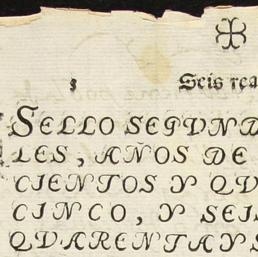 Seis rea
SELLO SEGVND
LES, AÑOS DE
CIENTOS Y QV
CINCO, Y SEIS
QVARENTAYS